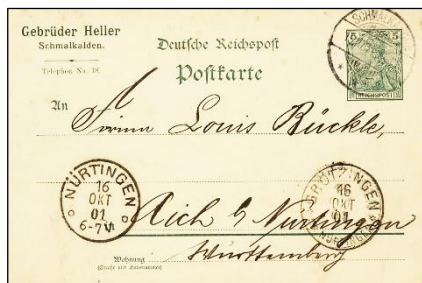 Gebrüder Heller
Schmalkalden.
Telephon No. 18.
Deutsche Reichspost
Postkarte
SCHMALKALDEN
5 5
REICHSPOST
An
Firma Louis Bückle,
NÜRTINGEN
16
OKT
01
6-7N
GRÖTZINGEN
16
OKT
01
NÜRTINGEN
Aich b/ Nürtingen
Württemberg
Wohnung
(Straße und Hausnummer)